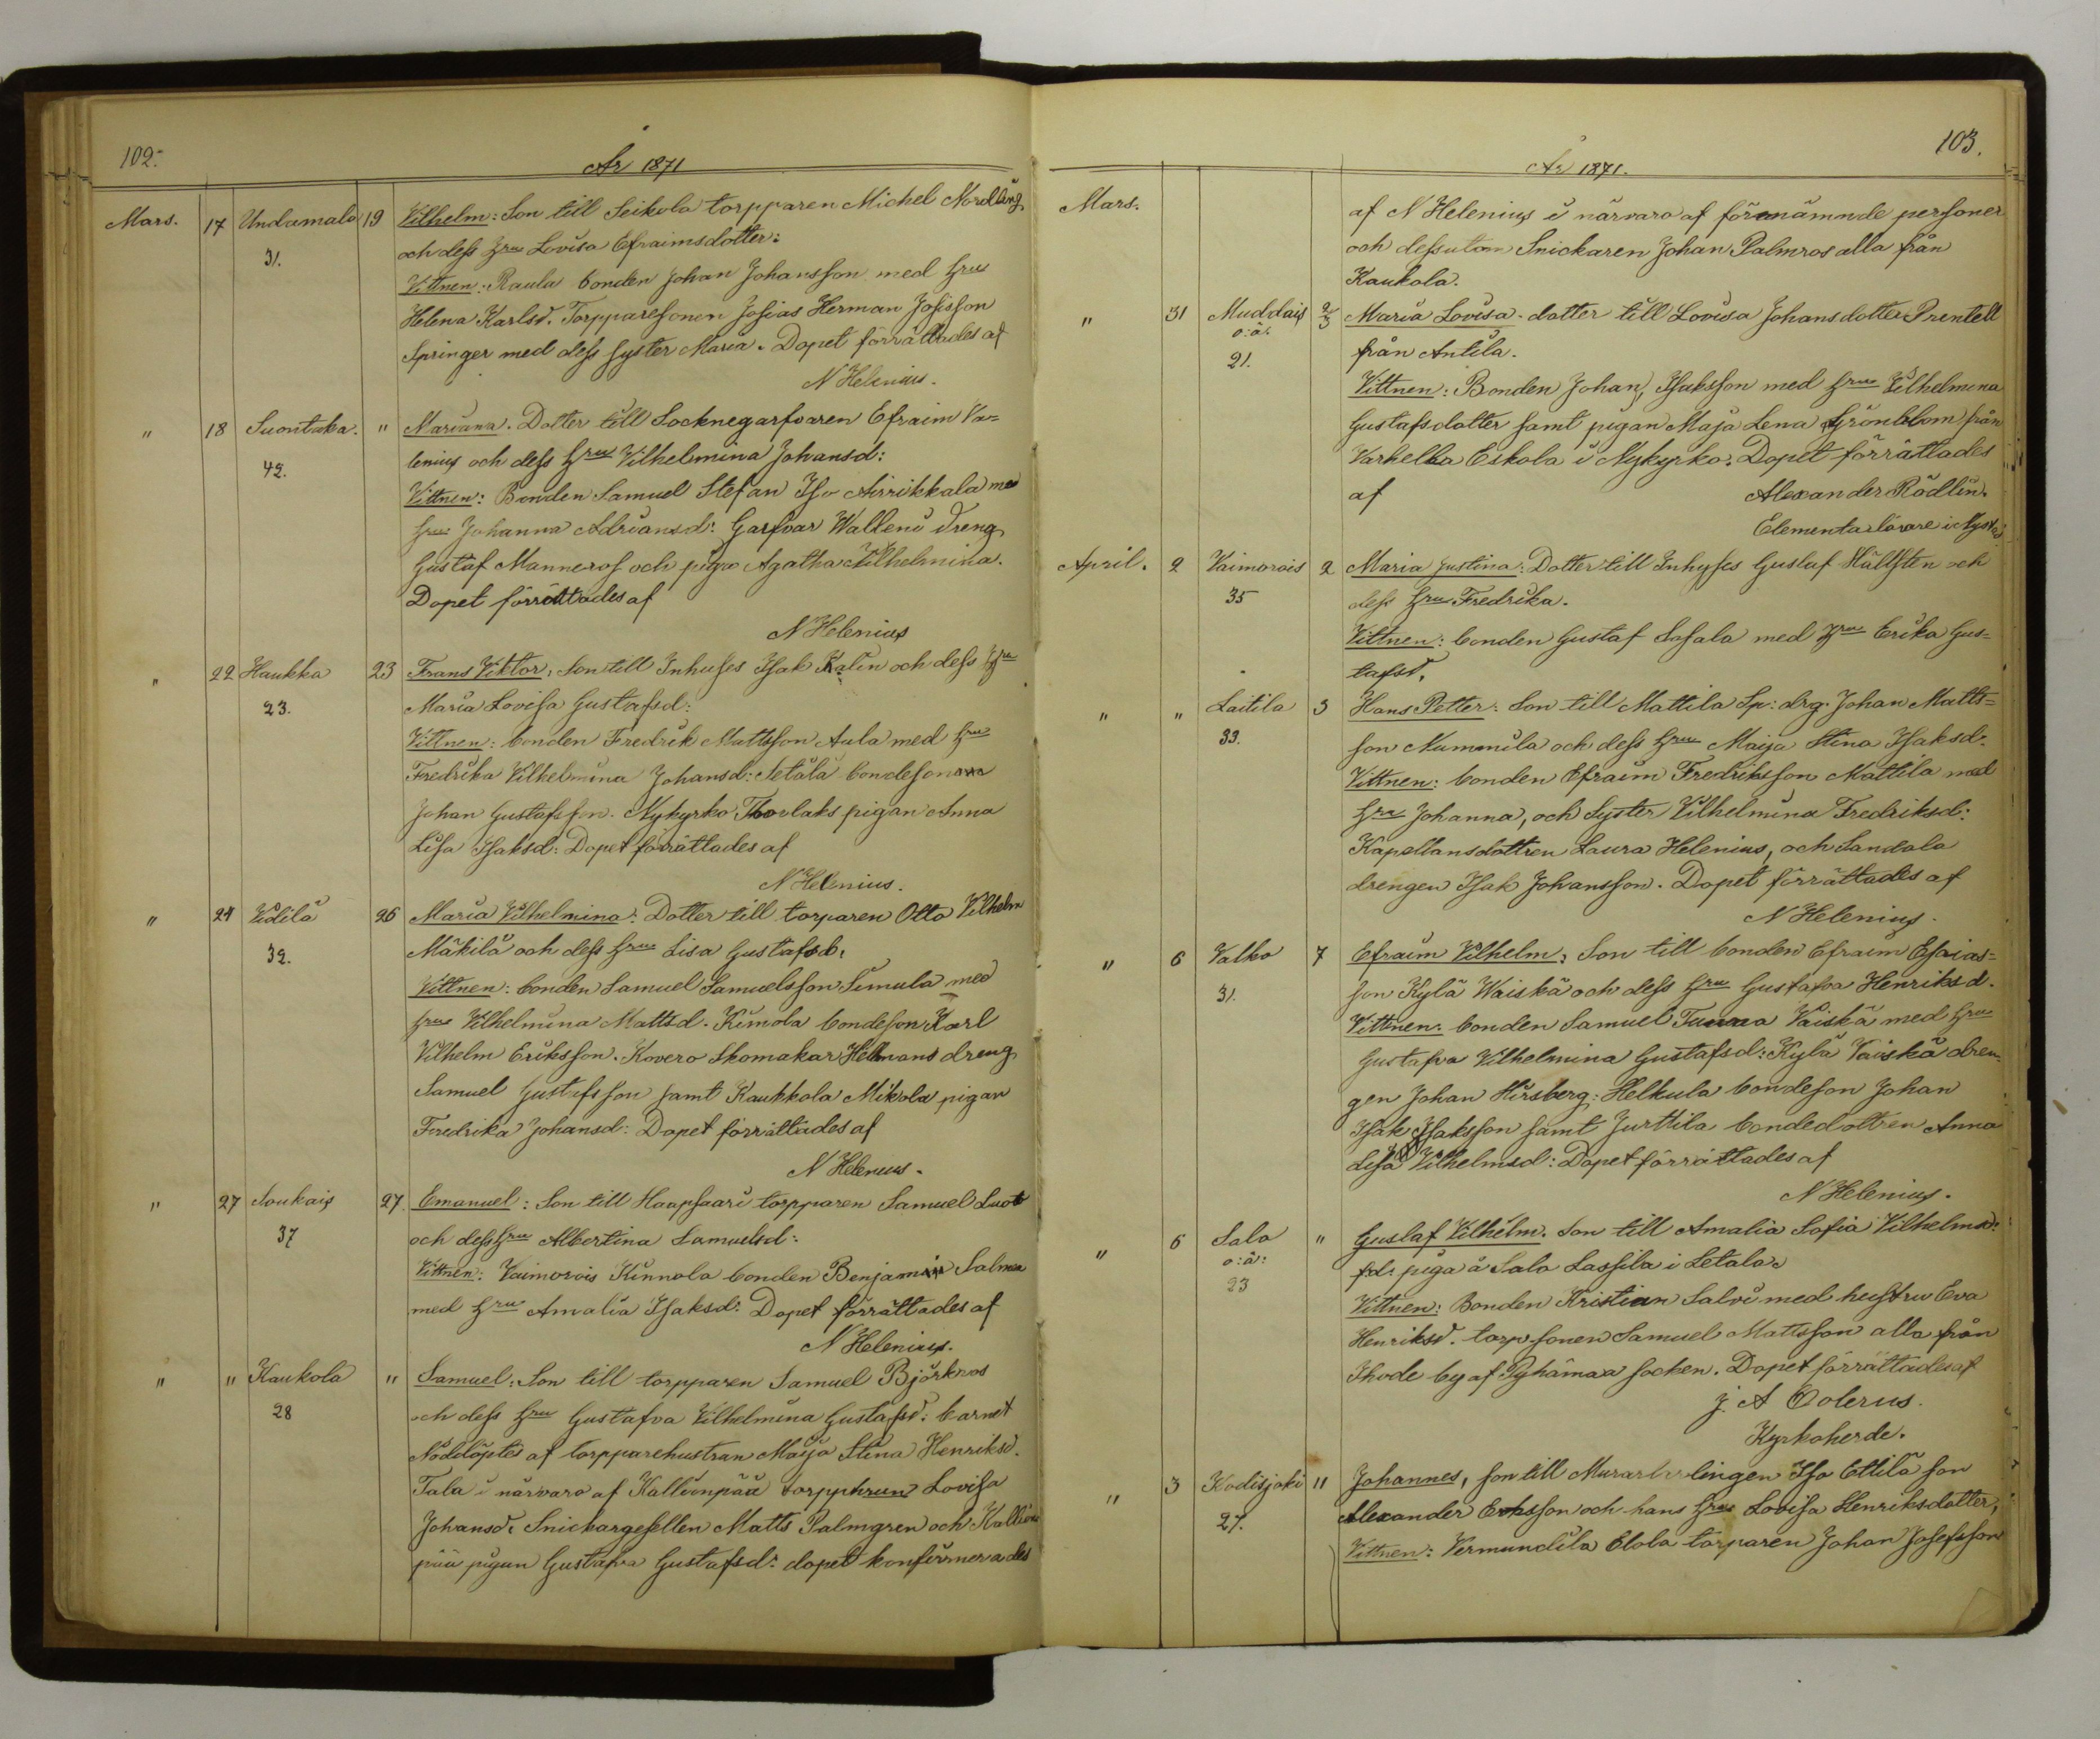 102.
År 1871
Mars. 17 Undamalo 19 Vilhelm: Son till Seikola torpparen Michel Nordling
31. och dess hru Lovisa Efraimsdotter:
Vittnen: Raula bonden Johan Johansson med hru
Helena Karlsd. Torpparesonen Josias Herman Josisson
Springer med dess syster Maria. Dopet förrättades af
N Helenius.
" 18 Suontaka. " Mariana. Dotter till Socknegarfvaren Efraim Va=
42. lenius och dess hru Vilhelmina Johansd:
Vittnen: Bonden Samuel Stefan Iso Airikkala med
hru Johanna Adriansd: Garfvar Walleni dreng
Gustaf Manneros och piga Agatha Vilhelmina.
Dopet förrättades af
N Helenius
" 22 Haukka 23 Frans Viktor, Son till Inhyses Isak Kalin och dess hru
23. Maria Lovisa Gustafsd:
Vittnen: bonden Fredrik Mattsson Aula med hru
Fredrika Vilhelmina Johansd: Setälä bondesonen
Johan Gustafsson. Nykyrko Thorlaks pigan Anna
Lisa Isaksd: Dopet förrättades af
N Helenius.
" 24 Vidilä 26 Maria Vilhelmina: Dotter till torparen Otto Vilhelm
32. Mäkilä och dess hru Lisa Gustafsd.
Vittnen: bonden Samuel Samuelsson Simula med
hru Vilhelmina Mattsd. Kimola bondeson Karl
Vilhelm Eriksson. Kovero Skomakar Hellmans dreng
Samuel Gustafsson samt Kaukkola Mikola pigan
Fredrika Johansd: Dopet förrättades af
N Helenius.
" 27 Soukais 27. Emanuel: Son till Haapsaari torpparen Samuel Luoto
37 och dess hru Albertina Samuelsd:
Vittnen: Vaimorois Kinnola bonden Benjamin Salmea
med hru Amalia Isaksd: Dopet förrättades af
N Helenius.
" " Kaukola " Samuel: Son till torpparen Samuel Björkroos
28 och dess hru Gustafva Vilhelmina Gustafsd: barnet
Nöddöptes af torpparehustrun Maija Stina Henriksd.
Tala i närvaro af Kallionpää torpphrun Lovisa
Johansd. Snickargesellen Matts Palmgren och Kallion
pää pigan Gustafva Gustafsd: dopet konfirmerades
103.
År 1871.
Mars. af N Helenius i närvaro af förenämnde personer
och dessutom Snickaren Johan Palmros alla från
Kaukola.
" 31 Muddais 2/3 Maria Lovisa. dotter till Lovisa Johansdotter Prentell
o:ä:
21. från Antila.
Vittnen: Bonden Johan, Isaksson med hru Vilhelmina
Gustafsdotter samt pigan Maja Lena Grönblom från
Varhella Eskola i Nykyrko. Dopet förrättades
af Alexander Rödlin.
Elementarlärare i Nystad
April. 2 Vaimorois 2 Maria Justina: Dotter till Inhyses Gustaf Hällsten och
35 dess hru Fredrika.
Vittnen: bonden Gustaf Sasala med hru Erika Gus=
tafsd.
" " Laitila 3 Hans Petter: Son till Mattila Sp: drg. Johan Matts=
33. son Nummila och dess hru Maija Stina Isaksd.
Vittnen: bonden Efraim Fredriksson Mattila med
hru Johanna, och Syster Vilhelmina Fredriksd:
Kapellansdottren Laura Helenius, och Sandala
drengen Isak Johansson. Dopet förrättades af
N Helenius.
" 6 Valko 7 Efraim Vilhelm: Son till bonden Efraim Esaias=
31. son Kylä Waiskä och dess hru Gustafva Henriksd.
Vittnen: bonden Samuel Tuuna Vaiskä med hru
Gustafva Vilhelmina Gustafsd: Kylä Vaiskä dren
gen Johan Hirsberg: Helkula bondeson Johan
Isak Isaksson samt Jurttila bondedottren Anna
Lisa Vilhelmsd: Dopet förrättades af
N Helenius.
" 6 Salo " Gustaf Vilhelm. Son till Amalia Sofia Vilhelmsd:
o:ä:
23 fd. piga å Salo Lassila i Letala.
Vittnen: Bonden Kristian Salvi med hustru Eva
Henriksd. torpsonen Samuel Mattsson alla från
Ihode by af Pyhämaa socken. Dopet förrättades af
J. A Oolerus.
Kyrkoherde.
" 3 Kodisjoki " Johannes, son till Murarlärlingen Iso Ettilä son
27. Alexander Eriksson och hans hru Lovisa Henriksdotter,
Vittnen: Vermundila Elola torparen Johan Josefsson